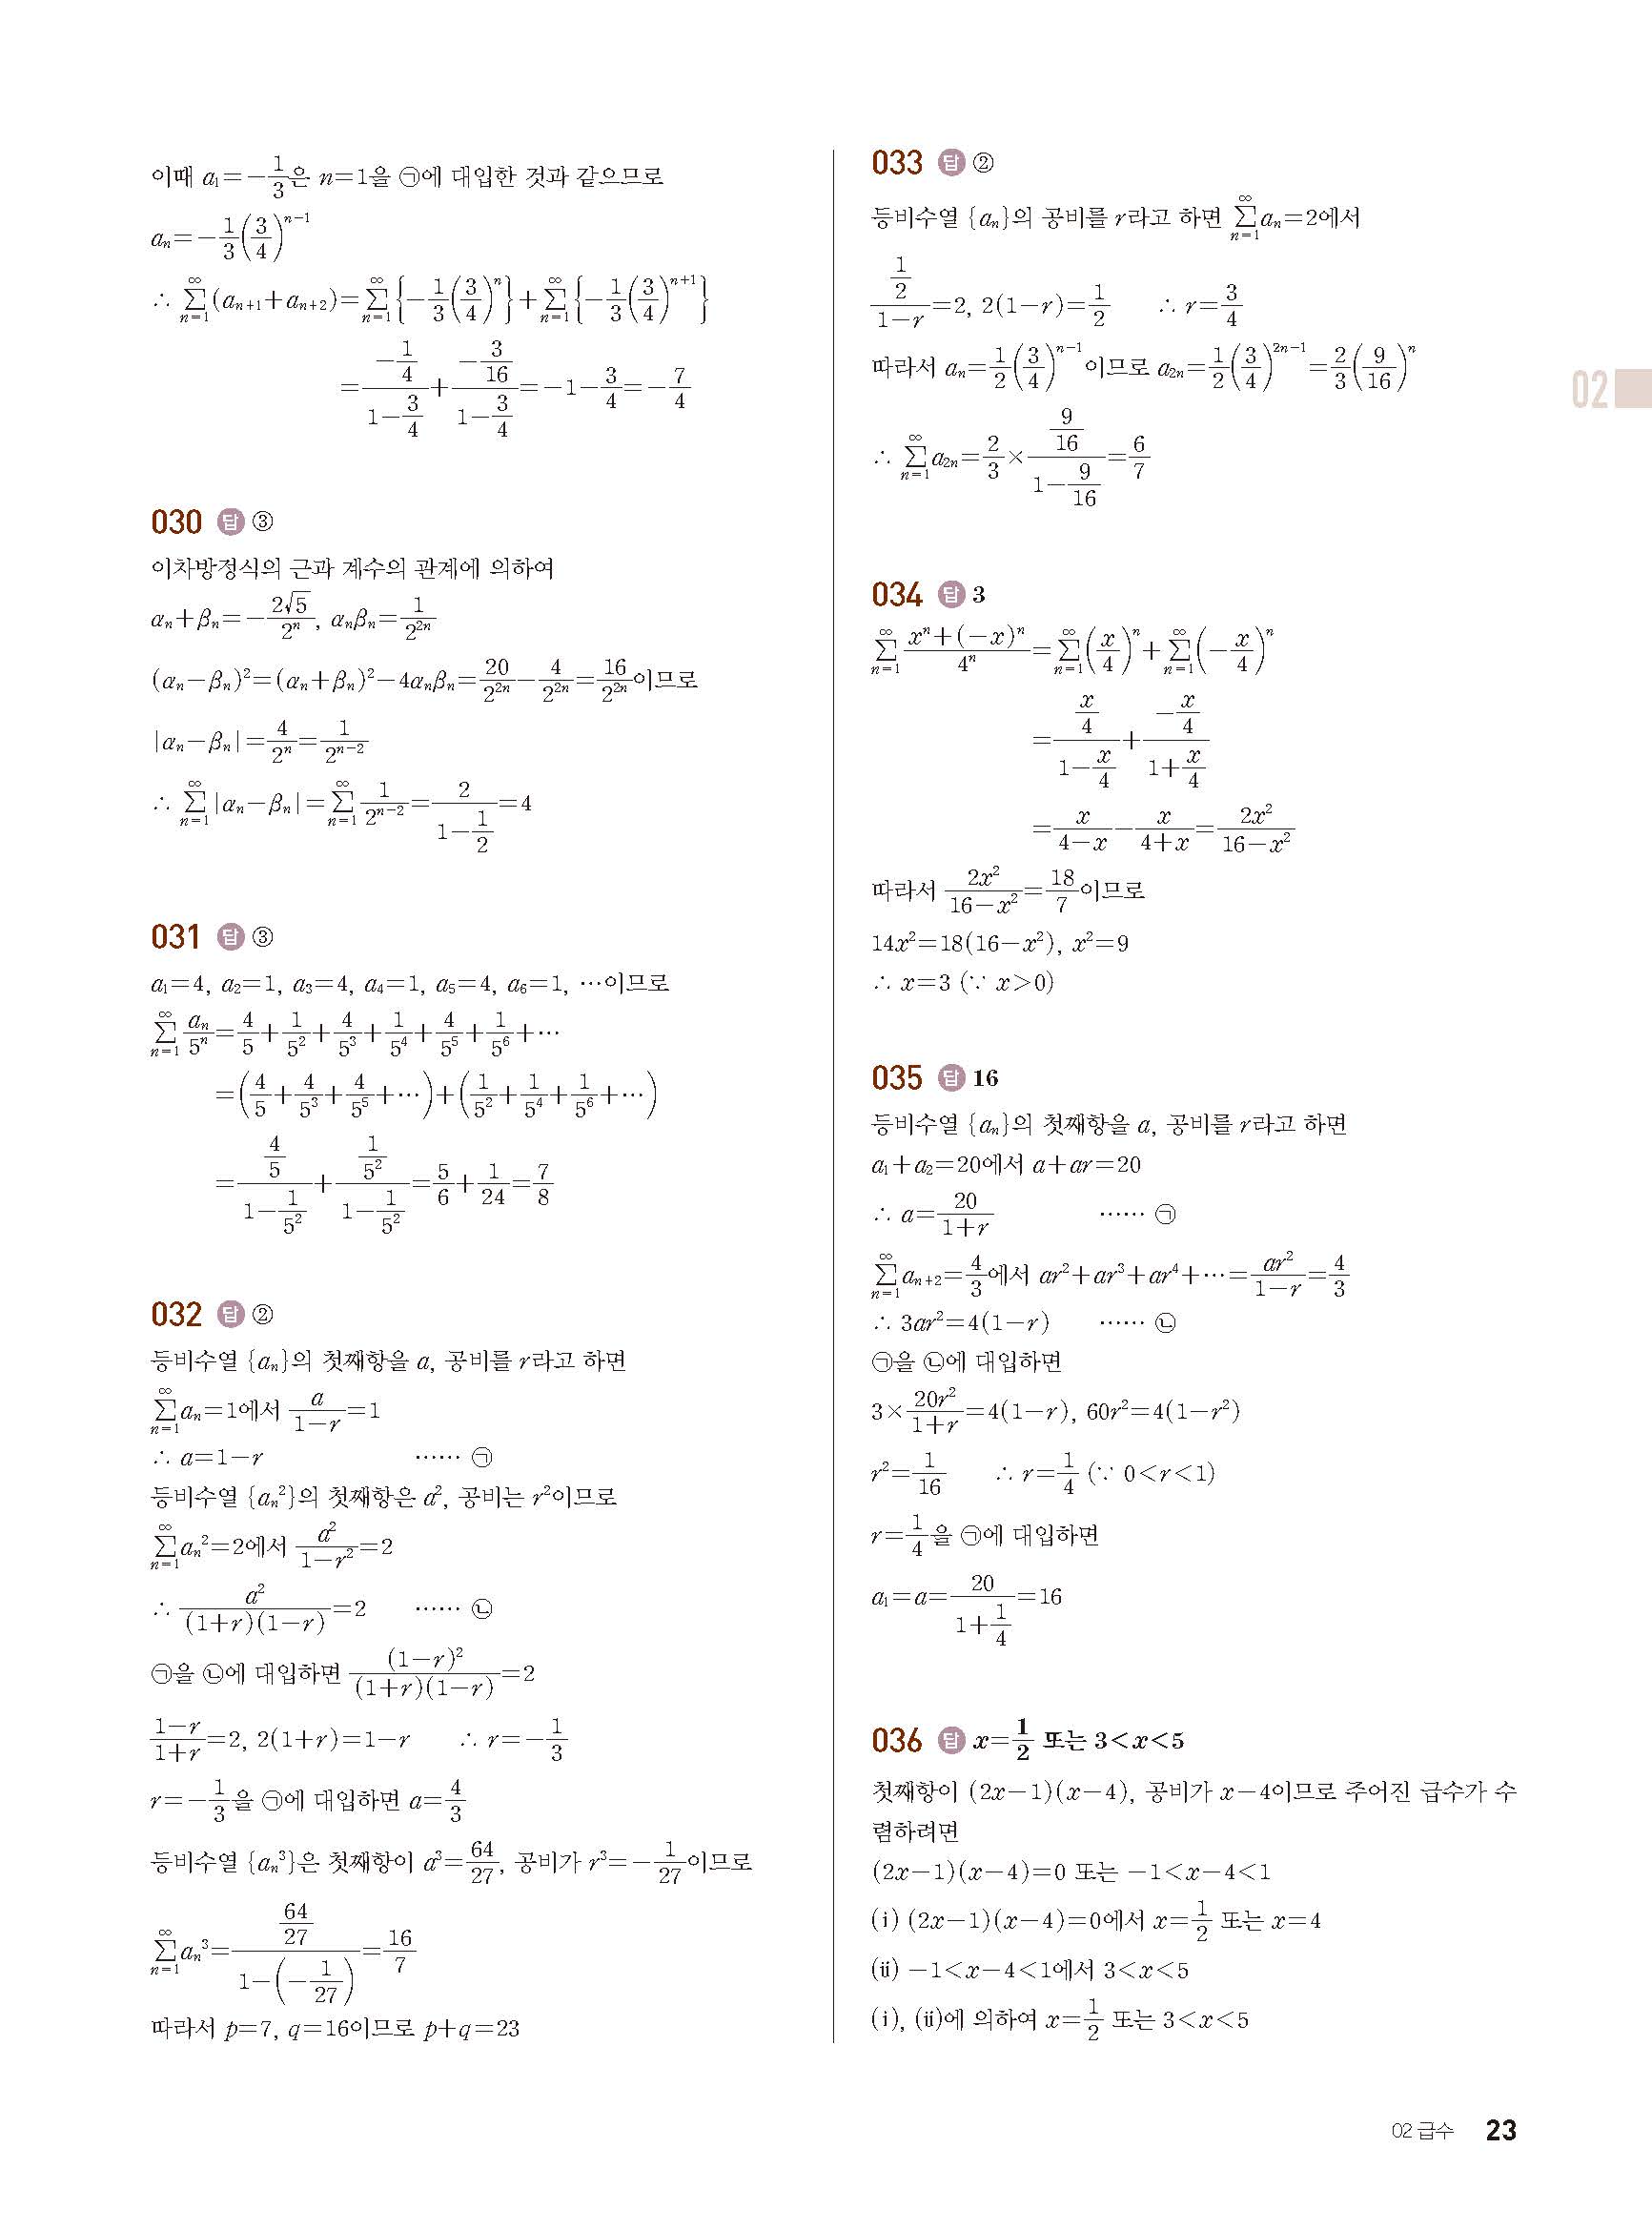 이때 a₁=-1/3은 n=1을 ㉠에 대입한 것과 같으므로
aₙ=-1/3(3/4)^(n-1)
∴ ∑_{n=1}^{∞}(aₙ₊₁+aₙ₊₂)=∑_{n=1}^{∞}{-1/3(3/4)^n}+∑_{n=1}^{∞}{-1/3(3/4)^(n+1)}
=(-1/4)/(1-3/4)+(-3/16)/(1-3/4)=-1-3/4=-7/4
030 답 ③
이차방정식의 근과 계수의 관계에 의하여
αₙ+βₙ=-2√5/2^n, αₙβₙ=1/2^(2n)
(αₙ-βₙ)²=(αₙ+βₙ)²-4αₙβₙ=20/2^(2n)-4/2^(2n)=16/2^(2n)이므로
|αₙ-βₙ|=4/2^n=1/2^(n-2)
∴ ∑_{n=1}^{∞}|αₙ-βₙ|=∑_{n=1}^{∞}1/2^(n-2)=2/(1-1/2)=4
031 답 ③
a₁=4, a₂=1, a₃=4, a₄=1, a₅=4, a₆=1, …이므로
∑_{n=1}^{∞}aₙ/5^n=4/5+1/5²+4/5³+1/5⁴+4/5⁵+1/5⁶+…
=(4/5+4/5³+4/5⁵+…)+(1/5²+1/5⁴+1/5⁶+…)
=(4/5)/(1-1/5²)+(1/5²)/(1-1/5²)=5/6+1/24=7/8
032 답 ②
등비수열 {aₙ}의 첫째항을 a, 공비를 r라고 하면
∑_{n=1}^{∞}aₙ=1에서 a/(1-r)=1
∴ a=1-r …… ㉠
등비수열 {aₙ²}의 첫째항은 a², 공비는 r²이므로
∑_{n=1}^{∞}aₙ²=2에서 a²/(1-r²)=2
∴ a²/((1+r)(1-r))=2 …… ㉡
㉠을 ㉡에 대입하면 (1-r)²/((1+r)(1-r))=2
(1-r)/(1+r)=2, 2(1+r)=1-r ∴ r=-1/3
r=-1/3을 ㉠에 대입하면 a=4/3
등비수열 {aₙ³}은 첫째항이 a³=64/27, 공비가 r³=-1/27이므로
∑_{n=1}^{∞}aₙ³=(64/27)/(1-(-1/27))=16/7
따라서 p=7, q=16이므로 p+q=23
033 답 ②
등비수열 {aₙ}의 공비를 r라고 하면 ∑_{n=1}^{∞}aₙ=2에서
(1/2)/(1-r)=2, 2(1-r)=1/2 ∴ r=3/4
따라서 aₙ=1/2(3/4)^(n-1)이므로 a₂ₙ=1/2(3/4)^(2n-1)=2/3(9/16)^n
∴ ∑_{n=1}^{∞}a₂ₙ=2/3×(9/16)/(1-9/16)=6/7
034 답 3
∑_{n=1}^{∞}(x^n+(-x)^n)/4^n=∑_{n=1}^{∞}(x/4)^n+∑_{n=1}^{∞}(-x/4)^n
=(x/4)/(1-x/4)+(-x/4)/(1+x/4)
=x/(4-x)-x/(4+x)=2x²/(16-x²)
따라서 2x²/(16-x²)=18/7이므로
14x²=18(16-x²), x²=9
∴ x=3 (∵ x>0)
035 답 16
등비수열 {aₙ}의 첫째항을 a, 공비를 r라고 하면
a₁+a₂=20에서 a+ar=20
∴ a=20/(1+r) …… ㉠
∑_{n=1}^{∞}aₙ₊₂=4/3에서 ar²+ar³+ar⁴+…=ar²/(1-r)=4/3
∴ 3ar²=4(1-r) …… ㉡
㉠을 ㉡에 대입하면
3×20r²/(1+r)=4(1-r), 60r²=4(1-r²)
r²=1/16 ∴ r=1/4 (∵ 0<r<1)
r=1/4을 ㉠에 대입하면
a₁=a=20/(1+1/4)=16
036 답 x=1/2 또는 3<x<5
첫째항이 (2x-1)(x-4), 공비가 x-4이므로 주어진 급수가 수
렴하려면
(2x-1)(x-4)=0 또는 -1<x-4<1
(ⅰ) (2x-1)(x-4)=0에서 x=1/2 또는 x=4
(ⅱ) -1<x-4<1에서 3<x<5
(ⅰ), (ⅱ)에 의하여 x=1/2 또는 3<x<5
02
02 급수 23